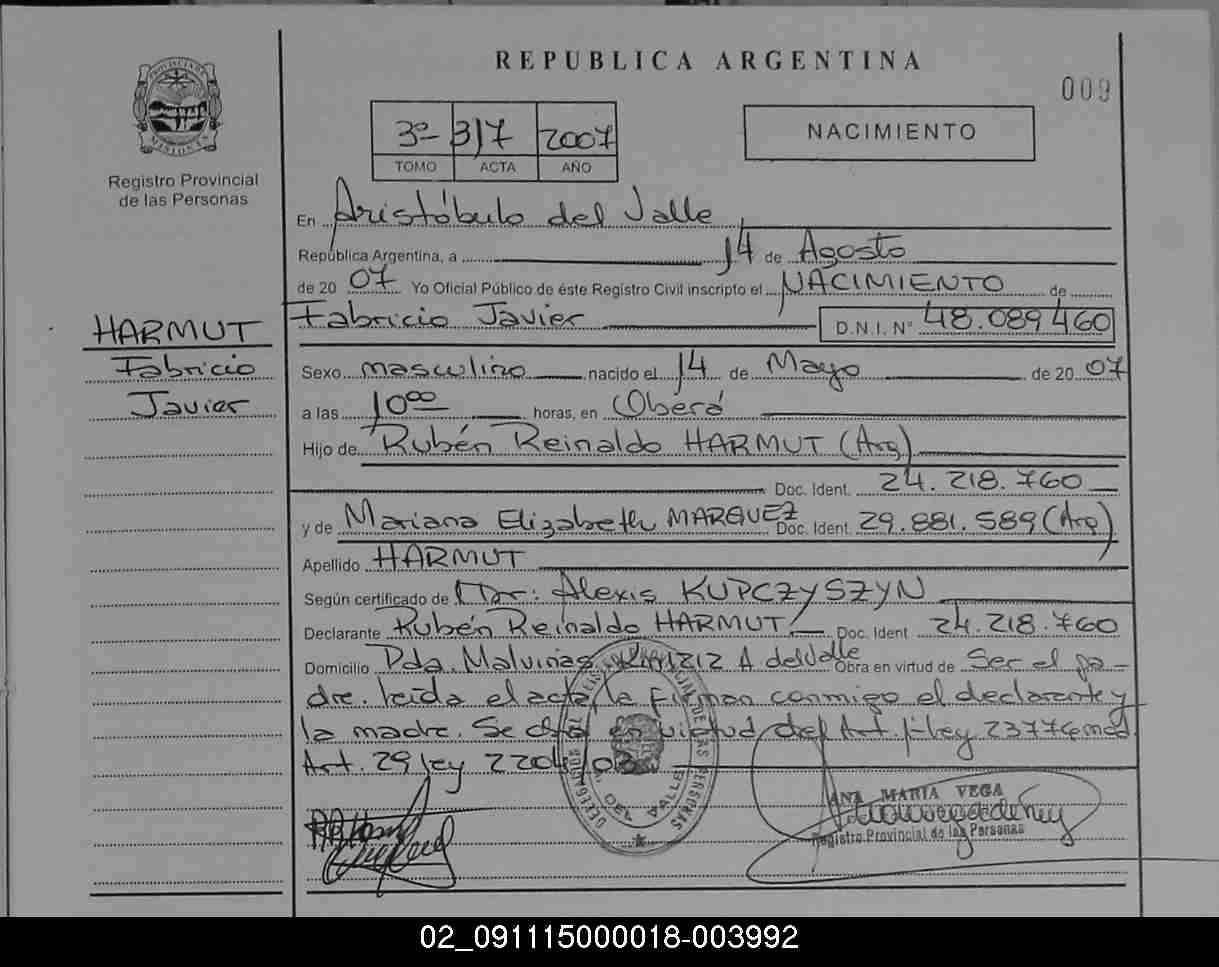 REPUBLICA ARGENTINA
009
PROVINCIA DE MISIONES
Registro Provincial
de las Personas
3º- 317 2007
TOMO ACTA AÑO
NACIMIENTO
En Aristóbulo del Valle
República Argentina, a 14 de Agosto
de 20 07 Yo Oficial Público de éste Registro Civil inscripto el NACIMIENTO de
Fabricio Javier D.N.I. Nº 48.089.460
HARMUT
Fabricio
Javier
Sexo masculino nacido el 14 de Mayo de 20 07
a las 10⁰⁰ horas, en Oberá
Hijo de Rubén Reinaldo HARMUT (Arg)
Doc. Ident. 24.218.760
y de Mariana Elizabeth MARQUEZ Doc. Ident. 29.881.589 (Arg)
Apellido HARMUT
Según certificado de Dr: Alexis KUPCZYSZYN
Declarante Rubén Reinaldo HARMUT Doc. Ident 24.218.760
Domicilio Pda. Malvinas Km 1212 A del Valle Obra en virtud de Ser el pa-
dre. Leída el acta, la firman conmigo el declarante y
la madre. Se en virtud del Art. 1-Ley 23776 mod.
Art. 29 ley 2204/03
DEL VALLE
ANA MARIA VEGA
Registro Provincial de las Personas
02_091115000018-003992